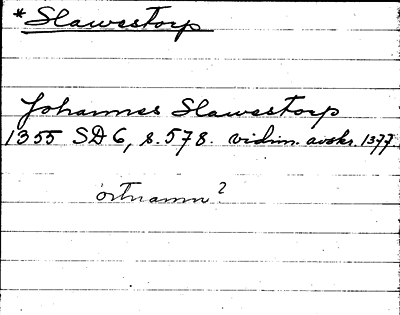 *Slawestorp
Johannes Slawestorp
1355 SD 6, s. 578. vidim. avskr. 1377.
ortnamn?